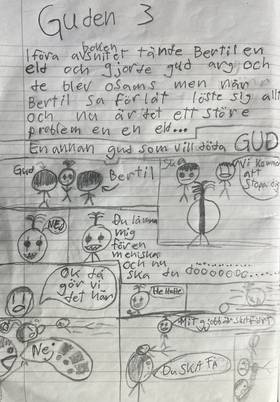 Guden 3
boken
Iföra avsnitet tände Bertil en
eld och gjorde gud arg och
de blev osams men när
Bertil sa förlåt löste sig allt
och nu är det ett större
problem en en eld...
En annan gud som vill döda GUD
Gud
Bertil
Ska
Vi kommer
att
stoppa dig
NEJ
Du lämna
mig
för en
människa
och nu
ska du döooooo......
OK då
gör vi
det här
Nej
Mitt jobb är
DU SKA FÅ